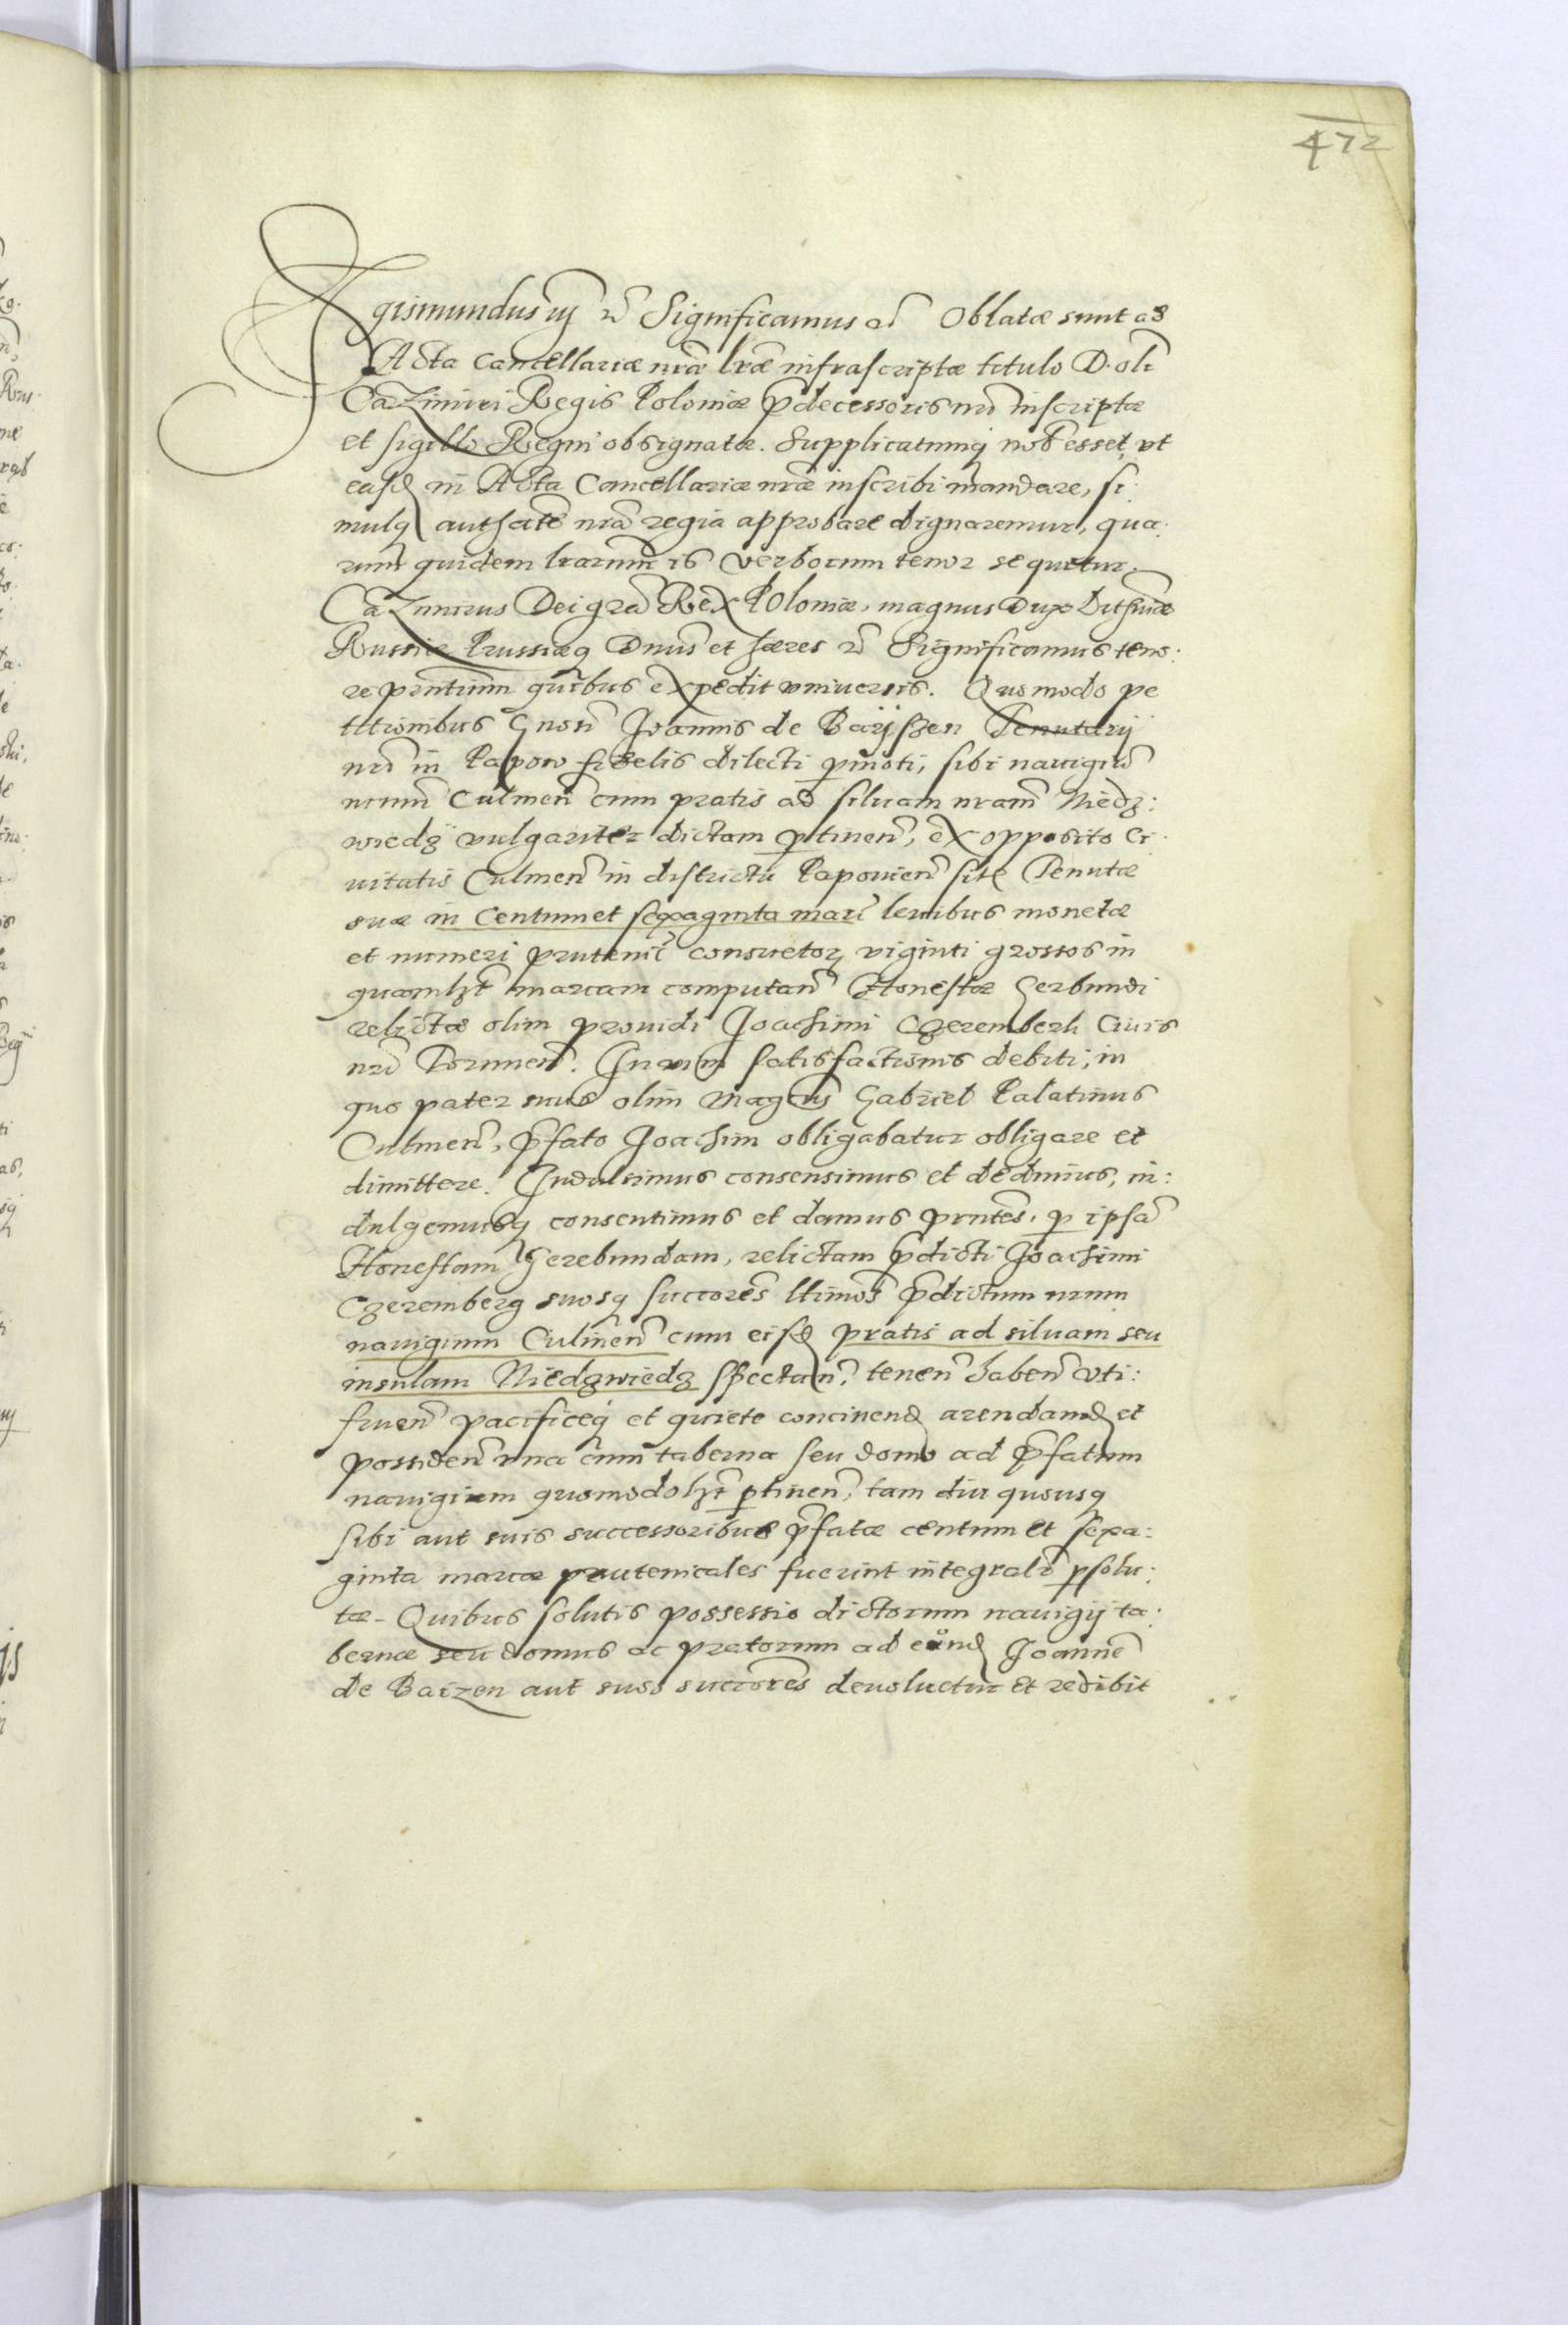 472
Sigismundus iij etc Significamus etc Oblatæ sunt ad
Acta Cancellariæ nræ lræ infrascriptæ titulo D. oli
Cazimiri Regis Poloniæ p̃decessoris nri inscriptæ
et sigillo Regni obsignatæ. Supplicatumq; nob esset, vt
easd in Acta Cancellariæ nræ inscribi mandare, si:
mulq; authate nra regia approbare dignaremur, qua:
rum quidem lrarum is verborum tenor sequitur.
Cazimirus Dei gra Rex Poloniæ, magnus Dux Lithuaniæ
Russiæ Prussiæq; Dnus et hæres etc Significamus teno:
re pntium quibus expedit vniuersis. Quomodo pe
titionibus Gnosi Joannis de Bayszen Tenutarij
nri in Papow fidelis dilecti p̃moti, sibi nauigiũ
nrum Culmeñ cum pratis ad siluam nram Niedz:
wiedz vulgariter dictam ptineñ, ex opposito Ci:
uitatis Culmeñ in districtu Papowieñ site Tenutæ
suæ in Centum et sexaginta mar leuibus monetæ
et numeri prutenic consuetor, viginti grossos in
quamlzt marcam computañ Honestæ Gerbundi
relictæ olim prouidi Joachimi Czeremberk Ciuis
nri Toruneñ. In vim satisfactionis debiti, in
quo pater suus olim Magcus Gabriel Palatinus
Culmeñ, p̃fato Joachim obligabatur obligare et
dimittere. Indulsimus consensimus et dedimus, in:
dulgemusq; consentimus et damus pntes, p ipsã
Honestam Gerebundam, relictam p̃dicti Joachimi
Czeremberg suosq; succores ltimos p̃dictum nrum
nauigium Culmeñ cum eisd pratis ad siluam seu
insulam Niedzwiedz spectañ, teneñ habeñ vti:
frueñ pacificeq; et quiete concinend arendand et
possideñ vna cum taberna seu domo ad p̃fatum
nauigium quomodolzt ptineñ, tam diu quousq;
sibi aut suis successoribus p̃fatæ centum et sexa:
ginta marcæ prutenicales fuerint integralr psolu:
tæ. Quibus solutis possessio dictorum nauigij ta:
bernæ seu domus ac pratorum ad eund Joannẽ
de Baizen aut suos succores deuoluetur et redibit